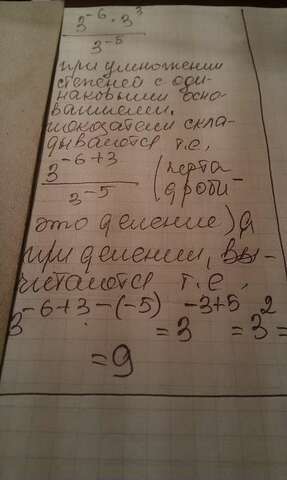 3⁻⁶ · 3³
3⁻⁵
при умножении
степеней с оди-
наковыми осно-
ваниями,
показатели скла-
дываются т.е,
3⁻⁶⁺³
3⁻⁵
(черта
дроби -
это деление) а
при делении, вы-
читаются т.е,
3⁻⁶⁺³⁻⁽⁻⁵⁾ = 3⁻³⁺⁵ = 3² =
= 9